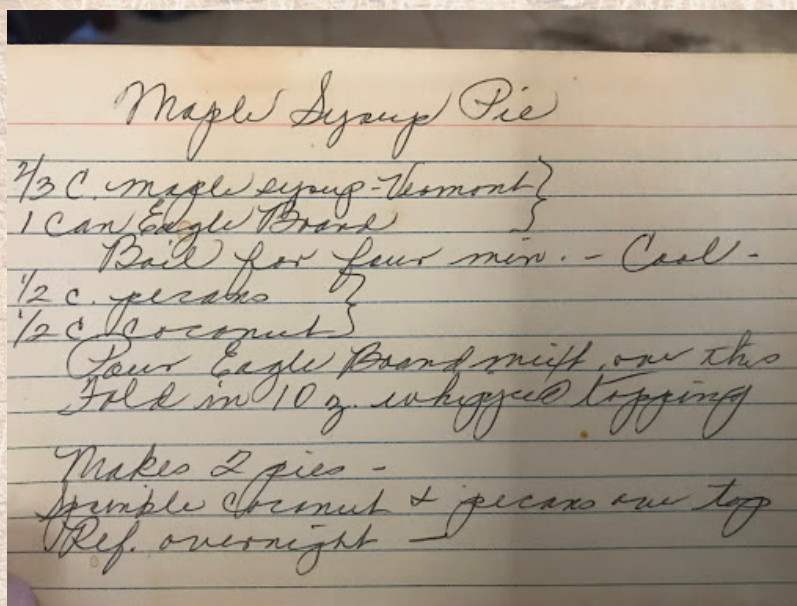 Maple Syrup Pie
2/3 C. maple syrup - Vermont }
1 Can Eagle Brand }
Boil for four min. - Cool -
1/2 c. pecans }
1/2 C. Coconut }
Pour Eagle Brand mixt. over this
Fold in 10 z. whipped topping
Makes 2 pies -
Sprinkle Coconut & pecans over top
Ref. overnight -